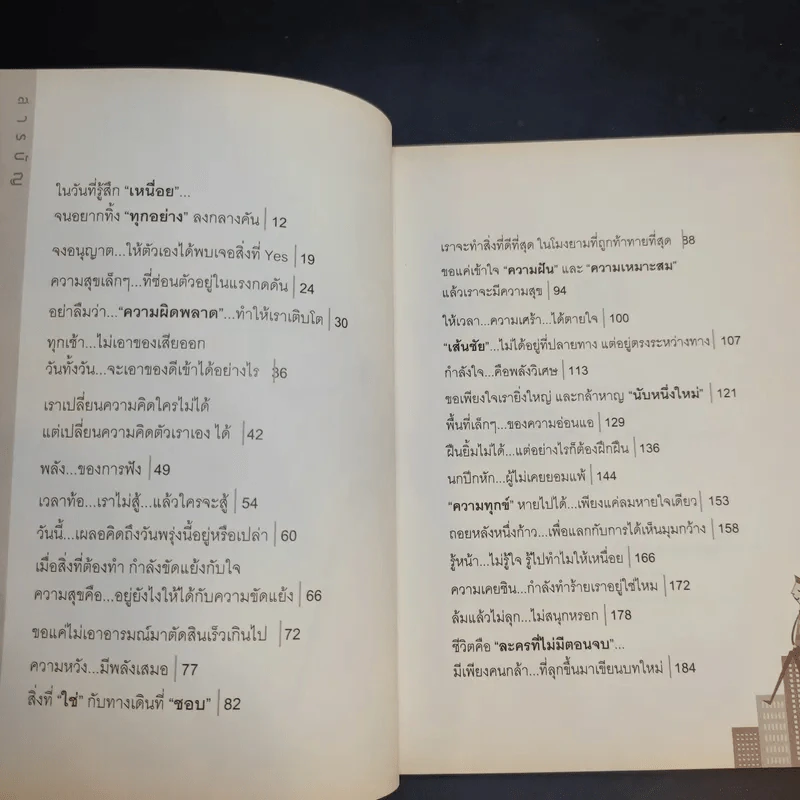 สารบัญ
ในวันที่รู้สึก “เหนื่อย”...
จนอยากทิ้ง “ทุกอย่าง” ลงกลางคัน | 12
จงอนุญาต...ให้ตัวเองได้พบเจอสิ่งที่ Yes | 19
ความสุขเล็กๆ...ที่ซ่อนตัวอยู่ในแรงกดดัน | 24
อย่าลืมว่า...“ความผิดพลาด”...ทำให้เราเติบโต | 30
ทุกเช้า...ไม่เอาของเสียออก
วันทั้งวัน...จะเอาของดีเข้าได้อย่างไร | 36
เราเปลี่ยนความคิดใครไม่ได้
แต่เปลี่ยนความคิดตัวเราเอง ได้ | 42
พลัง...ของการฟัง | 49
เวลาท้อ...เราไม่สู้...แล้วใครจะสู้ | 54
วันนี้...เผลอคิดถึงวันพรุ่งนี้อยู่หรือเปล่า | 60
เมื่อสิ่งที่ต้องทำ กำลังขัดแย้งกับใจ
ความสุขคือ...อยู่ยังไงให้ได้กับความขัดแย้ง | 66
ขอแค่ไม่เอาอารมณ์มาตัดสินเร็วเกินไป | 72
ความหวัง...มีพลังเสมอ | 77
สิ่งที่ “ใช่” กับทางเดินที่ “ชอบ” | 82
เราจะทำสิ่งที่ดีที่สุด ในโมงยามที่ถูกท้าทายที่สุด | 88
ขอแค่เข้าใจ “ความฝัน” และ “ความเหมาะสม”
แล้วเราจะมีความสุข | 94
ให้เวลา...ความเศร้า...ได้ตายใจ | 100
“เส้นชัย”...ไม่ได้อยู่ที่ปลายทาง แต่อยู่ตรงระหว่างทาง | 107
กำลังใจ...คือพลังวิเศษ | 113
ขอเพียงใจเรายิ่งใหญ่ และกล้าหาญ “นับหนึ่งใหม่” | 121
พื้นที่เล็กๆ...ของความอ่อนแอ | 129
ฝืนยิ้มไม่ได้...แต่อย่างไรก็ต้องฝึกฝืน | 136
นกปีกหัก...ผู้ไม่เคยยอมแพ้ | 144
“ความทุกข์” หายไปได้...เพียงแค่ลมหายใจเดียว | 153
ถอยหลังหนึ่งก้าว...เพื่อแลกกับการได้เห็นมุมกว้าง | 158
รู้หน้า...ไม่รู้ใจ รู้ไปทำไมให้เหนื่อย | 166
ความเคยชิน...กำลังทำร้ายเราอยู่ใช่ไหม | 172
ล้มแล้วไม่ลุก...ไม่สนุกหรอก | 178
ชีวิตคือ “ละครที่ไม่มีตอนจบ”...
มีเพียงคนกล้า...ที่ลุกขึ้นมาเขียนบทใหม่ | 184